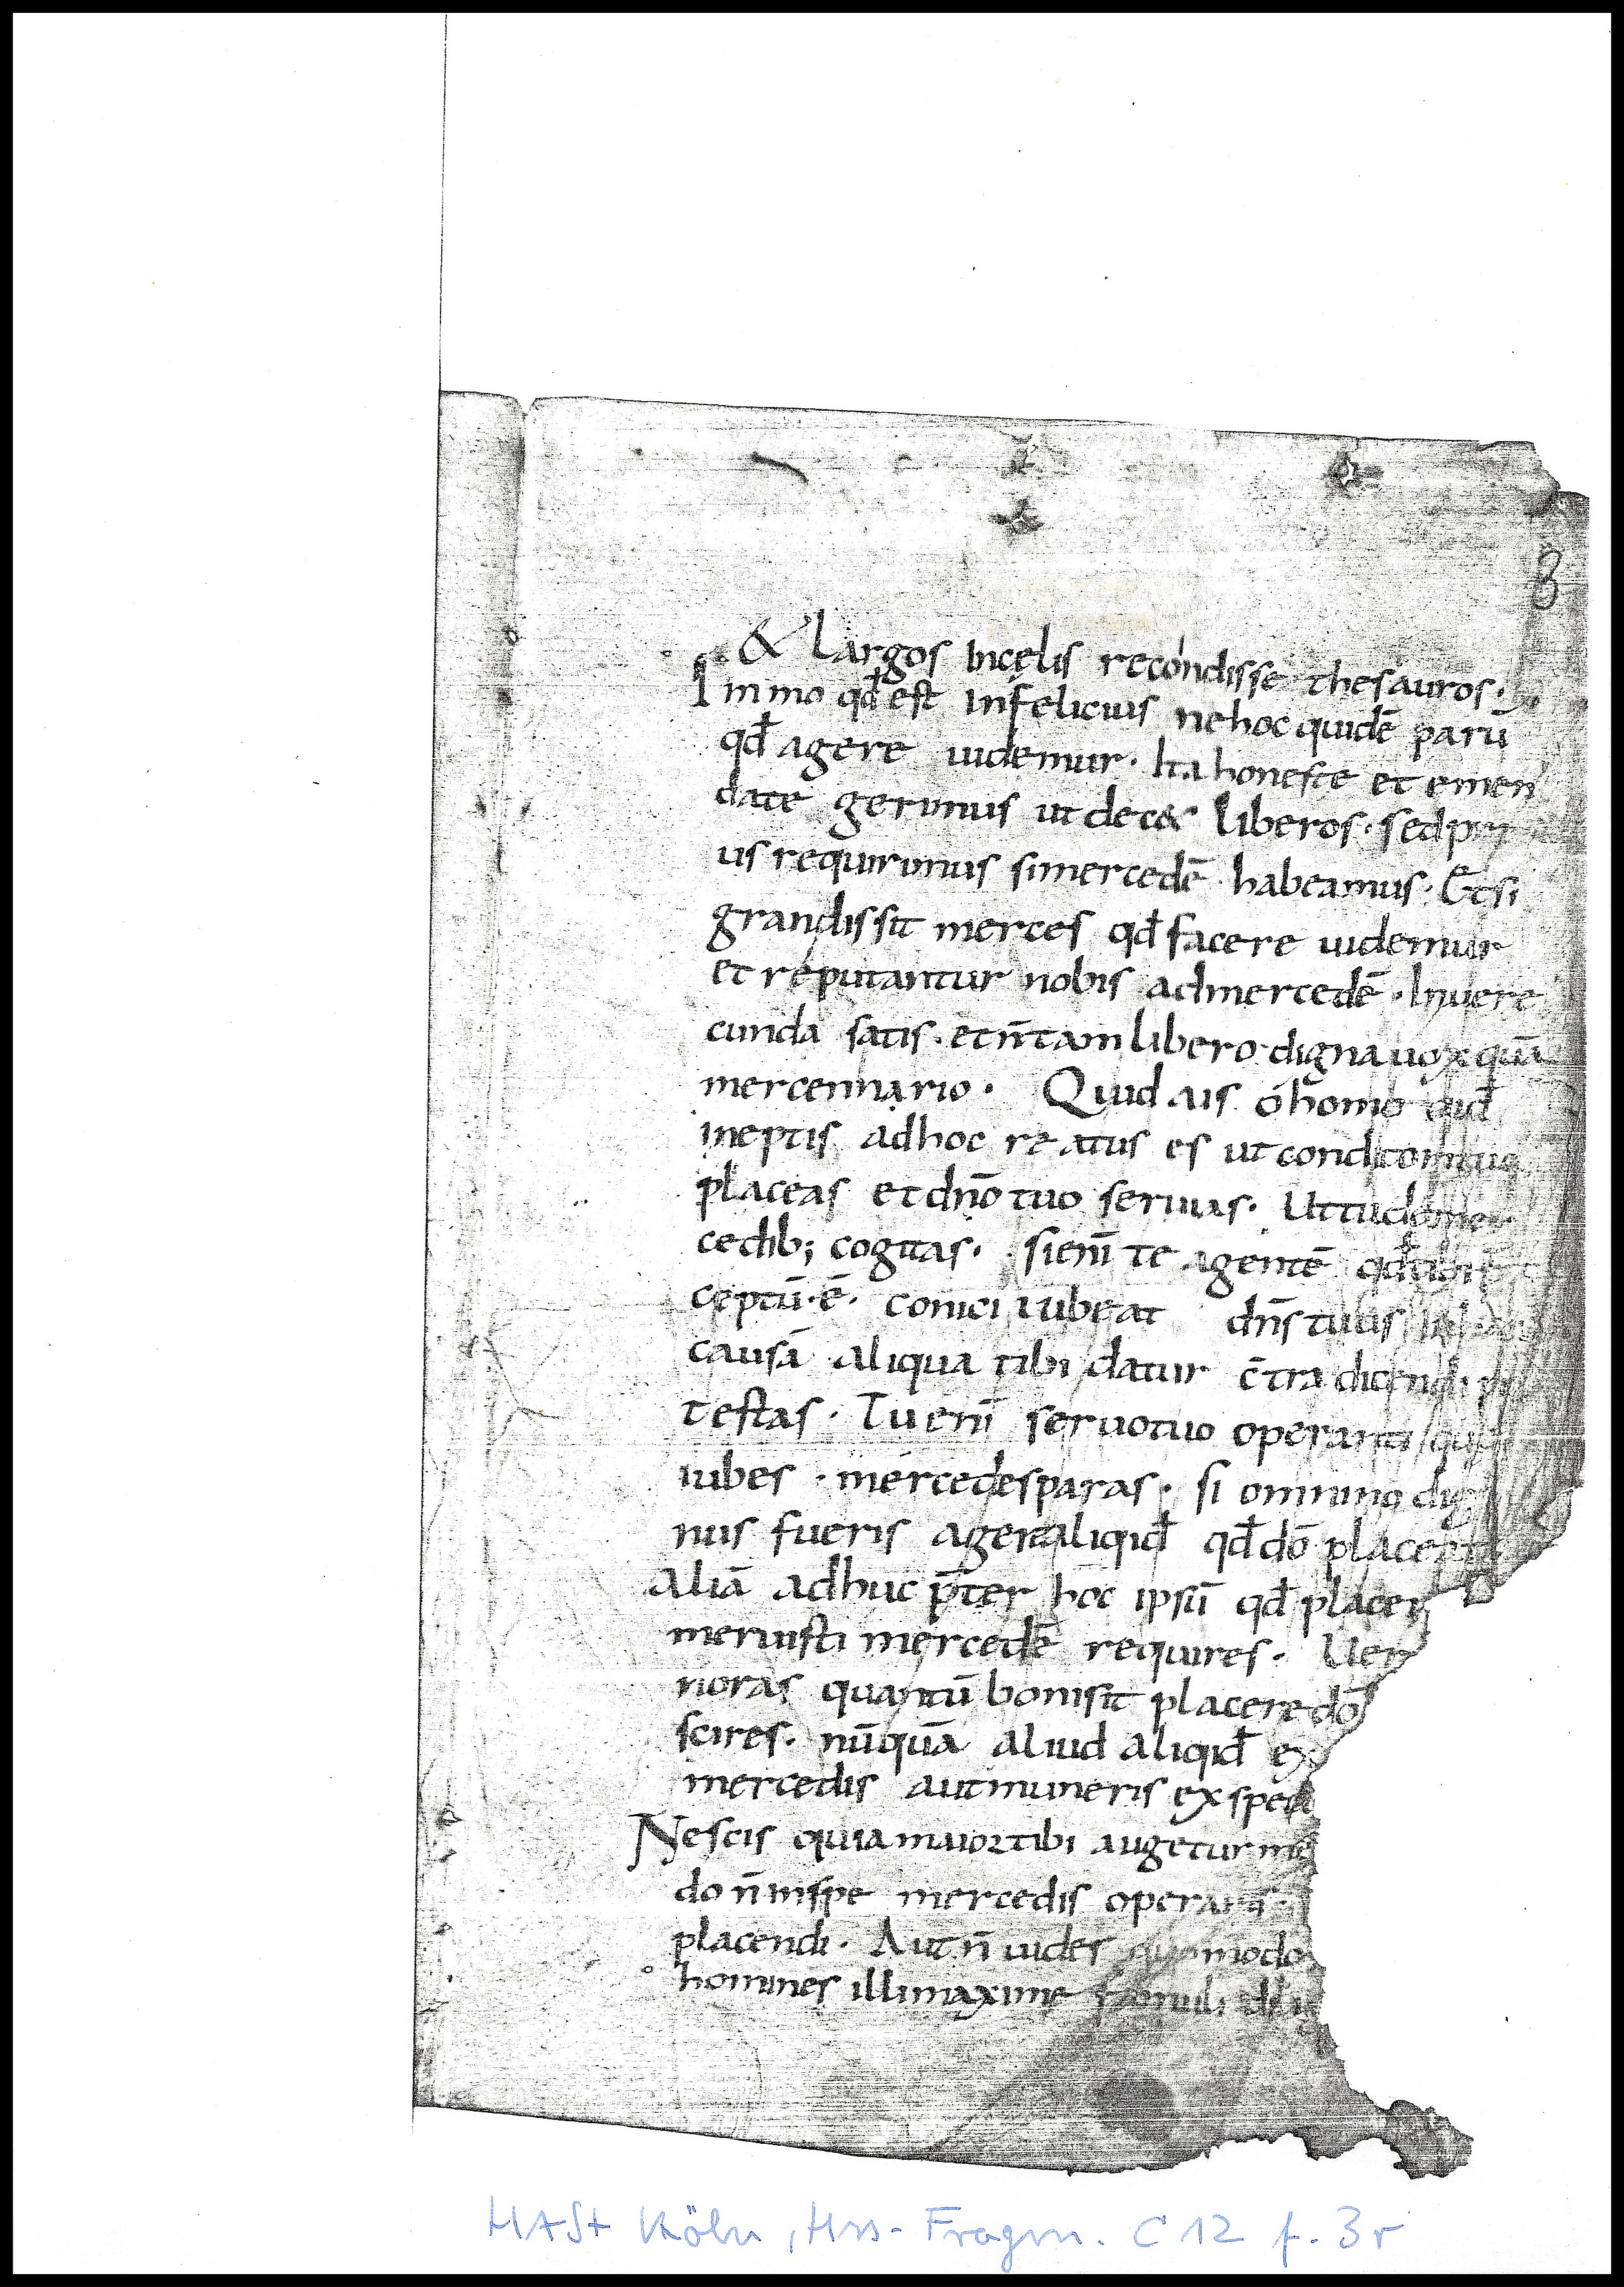 8
& largos incęlis recondisse thesauros.
Immo qđ est infelicius nehoc quidē parū
qđ agere uidemur. Ita honeste et emen
date gerimus ut dec& liberos. sed pri
us requirimus simercedē habeamus. Etsi
grandissit merces qđ facere uidemur
et reputantur nobis admercedē. Inuere
cunda satis. et n̄ tam libero digna uox quā
mercennario. Quid ais óhomo quid
ineptis adhoc reatus es ut conditorituo
placeas et dn̄o tuo seruias. Uttu
cedib; cogitas. sieni̅ te agentē
ceptū.ē. conici iubeat dn̄s tuus
causā aliqua tibi datur c̄tra dicendi
testas. Tu eni̅ seruotuo operanti
iubes. mercedesparas. si omnino dig
nus fueris agerealiqid̄ qđ dō placeat
aliā adhuc p̄ter hoc ipsū qđ placer
meruisti mercedē requires. Uer
noras quantū bonisit placere dō
scires. nūquā aliud aliqid̄ ex
mercedis autmuneris exspec
Nescis quiamaior tibi augetur me
do n̄ inspe mercedis operaris
placendi. Aut n̄ uides quomodo
homines illimaxime famuli
HASt Köln, Hss-Fragm. C 12 f. 3r